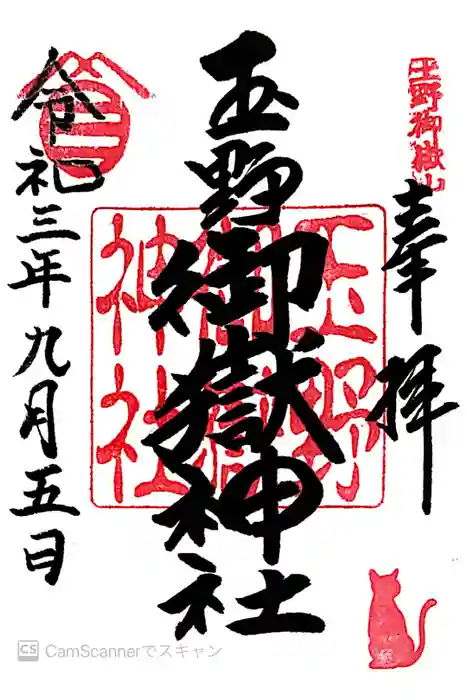 玉野御嶽山
奉拝
玉野御嶽神社
玉野御嶽神社
令和三年九月五日
CS CamScannerでスキャン